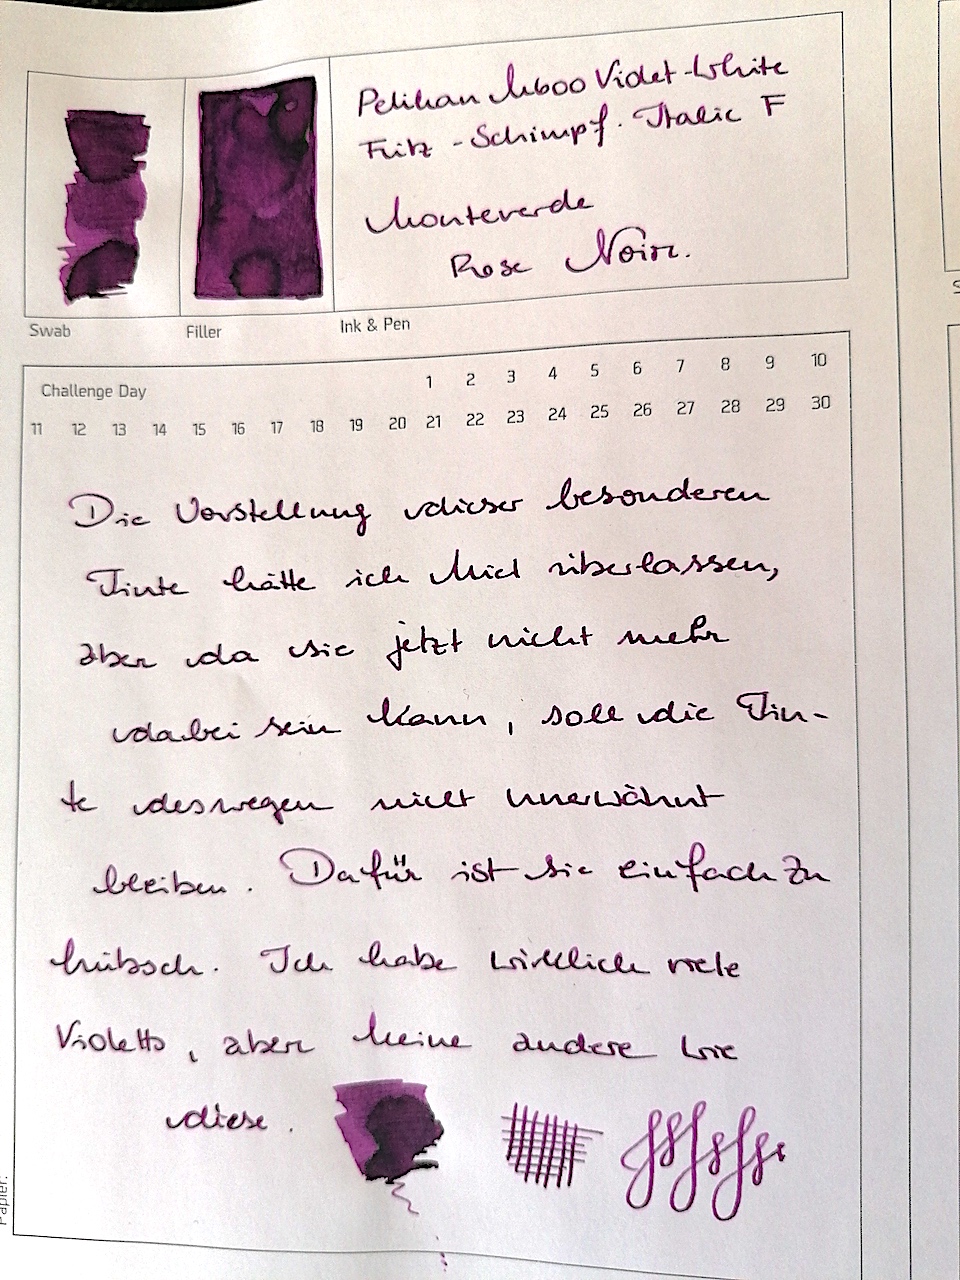 Pelikan M600 Violet-White
Fritz-Schimpf. Italic F
Monteverde
Rose Noir.
Swab
Filler
Ink & Pen
Challenge Day
1 2 3 4 5 6 7 8 9 10
11 12 13 14 15 16 17 18 19 20 21 22 23 24 25 26 27 28 29 30
Die Vorstellung dieser besonderen
Tinte hätte ich Mich überlassen,
aber da sie jetzt nicht mehr
dabei sein kann, soll die Tin-
te deswegen nicht unerwähnt
bleiben. Dafür ist sie einfach zu
hübsch. Ich habe wirklich viele
Violetts, aber keine andere wie
diese.
Papier: